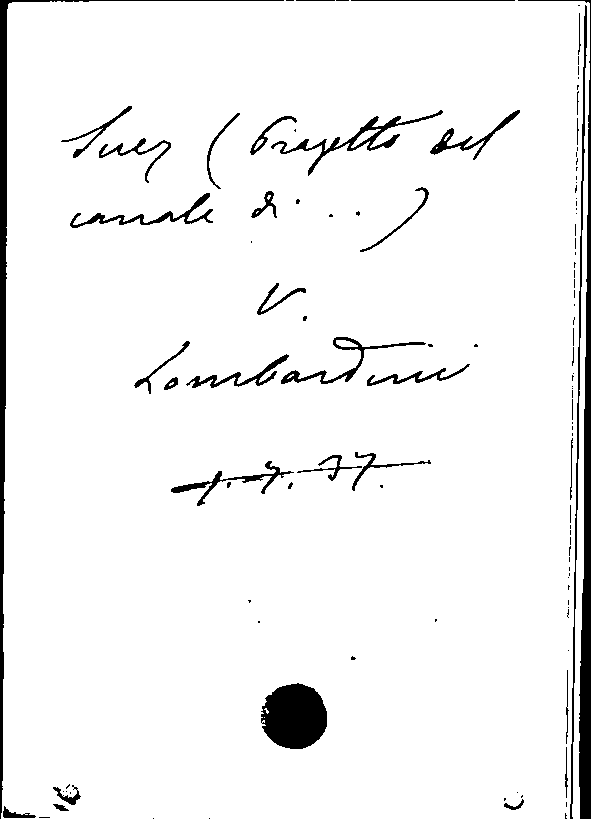 Suez (Progetto del
canale di . . .)
V.
Lombardini
1. 7. 37.